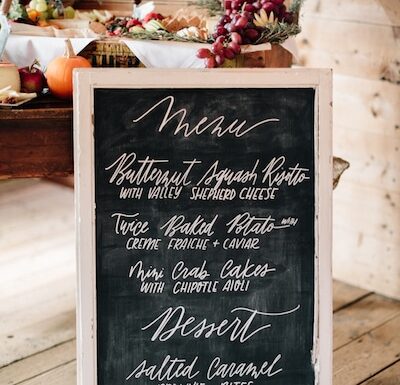 Menu
Butternut Squash Risotto
WITH VALLEY SHEPHERD CHEESE
Twice Baked Potato WITH
CREME FRAICHE + CAVIAR
Mini Crab Cakes
WITH CHIPOTLE AIOLI
Dessert
Salted Caramel